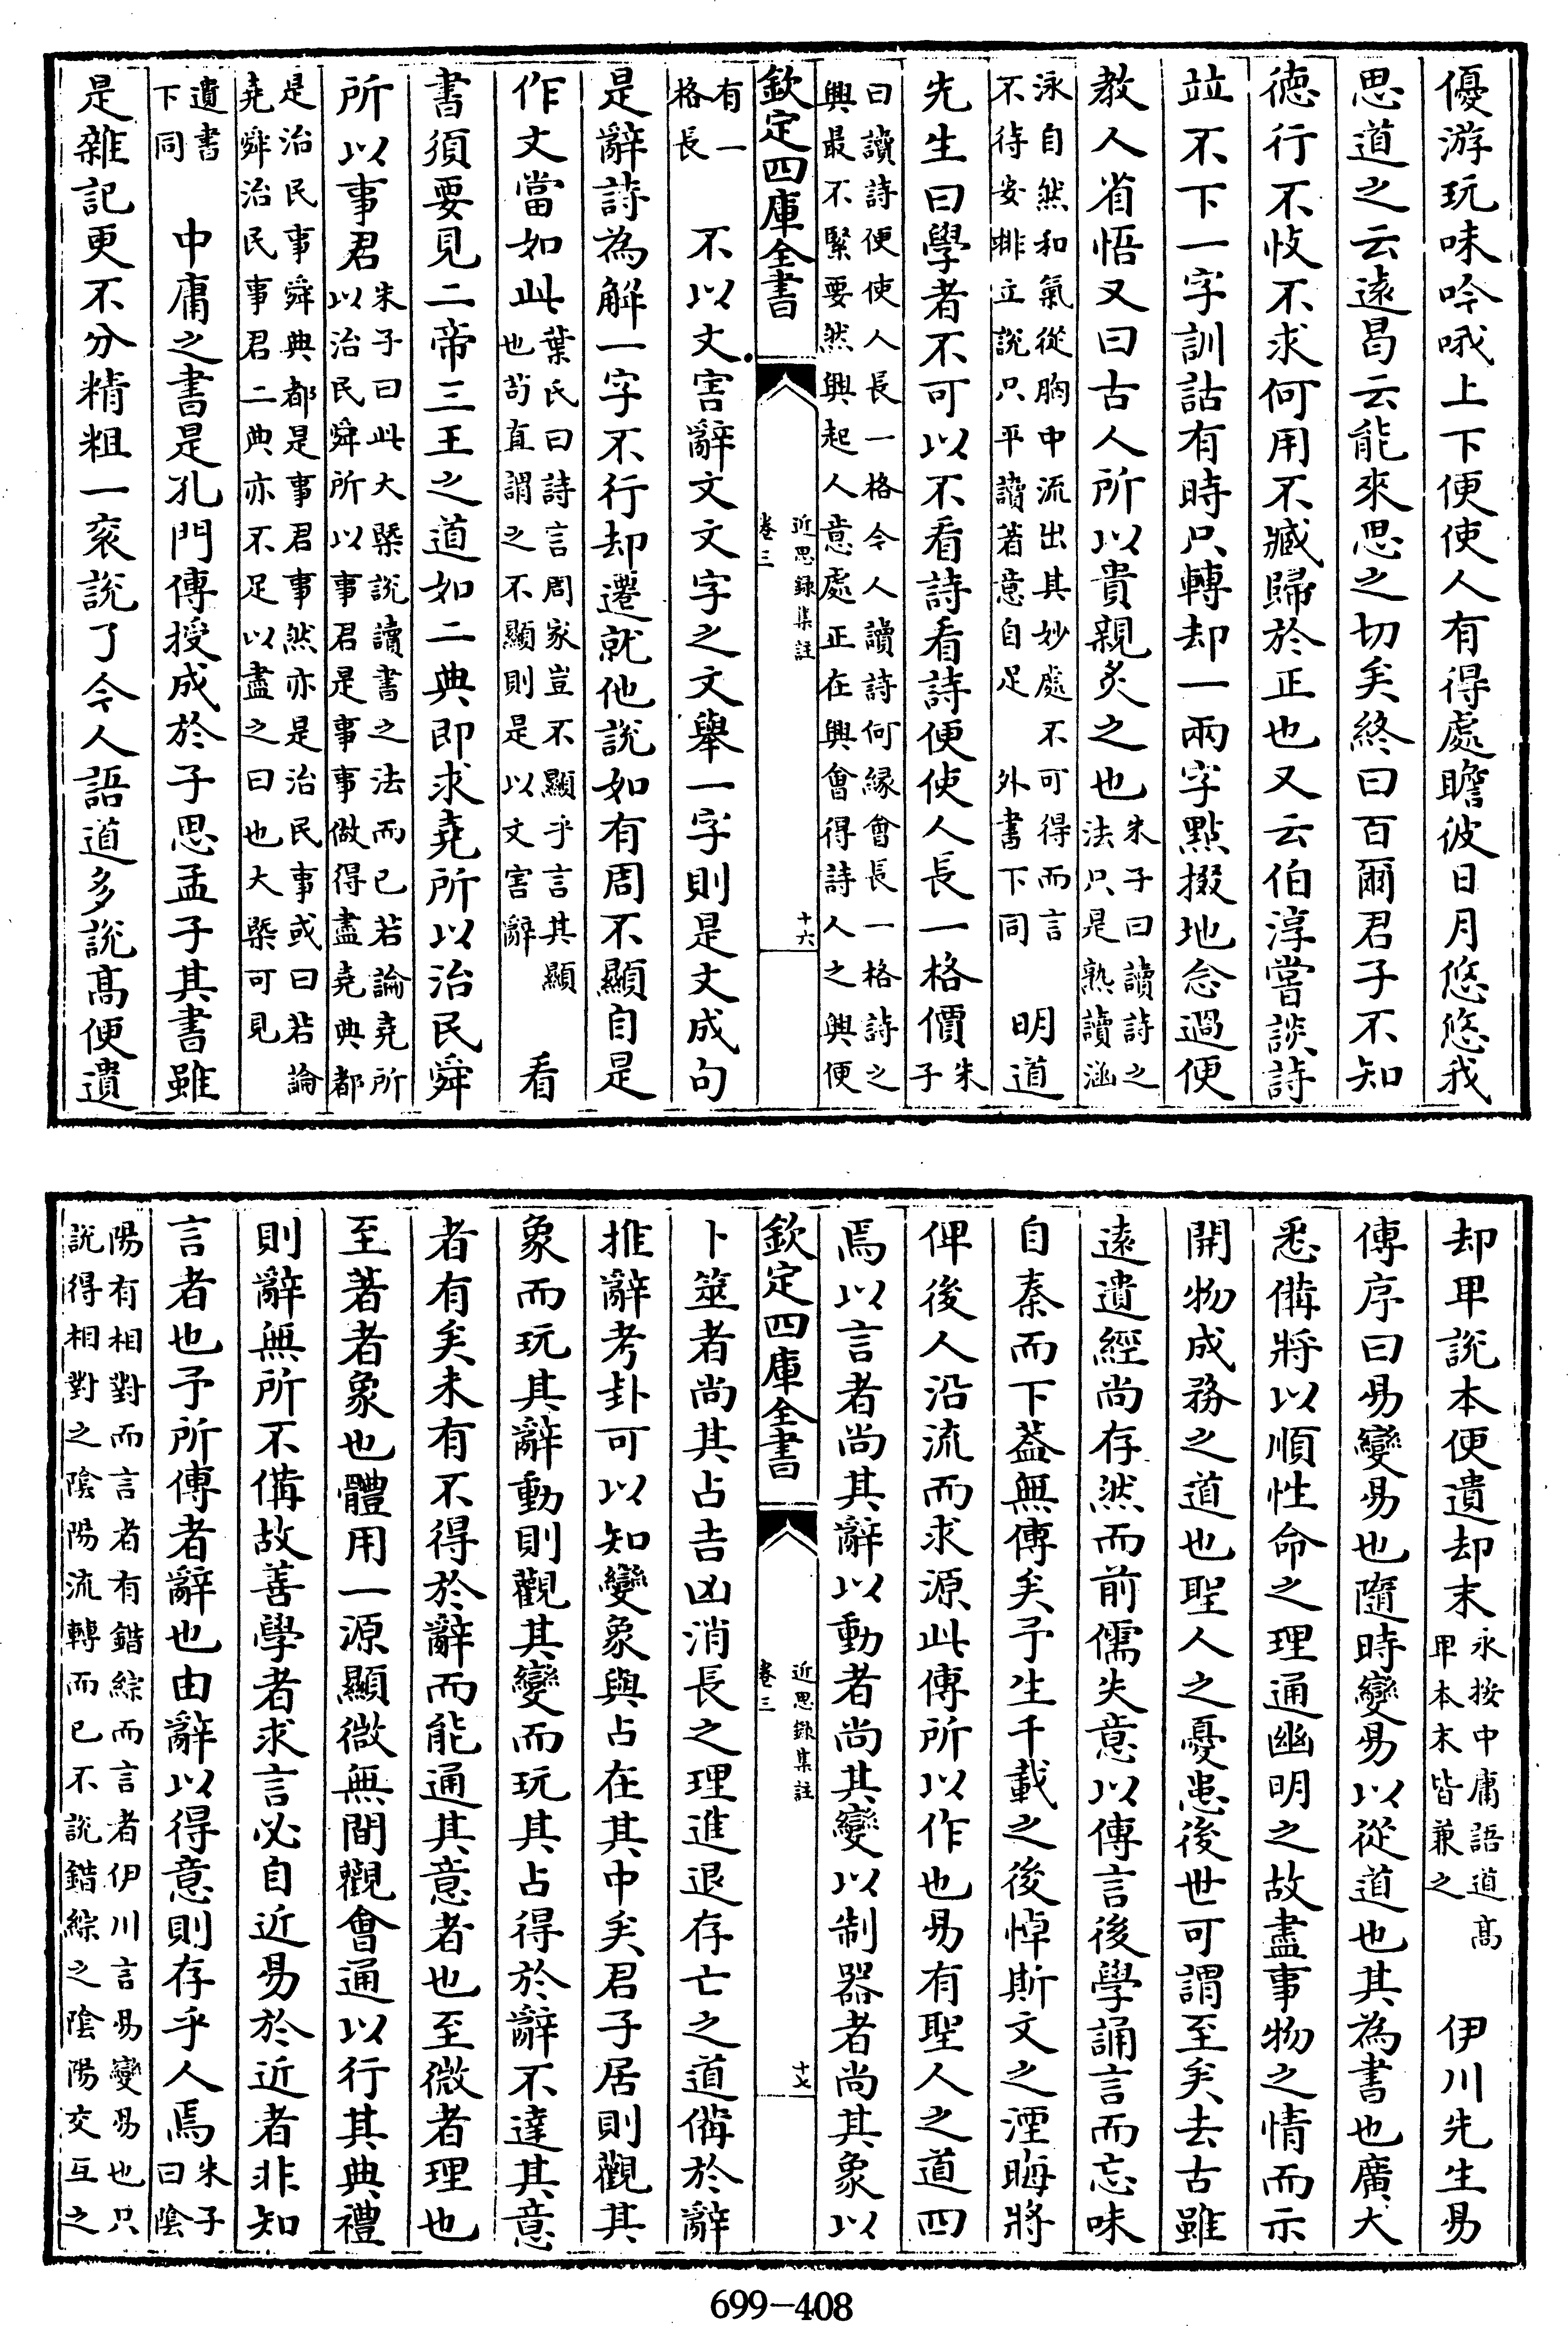 優游玩味吟哦上下便使人有得處瞻彼日月悠悠我
思道之云遠曷云能來思之切矣終曰百爾君子不知
德行不忮不求何用不臧歸於正也又云伯淳嘗談詩
竝不下一字訓詁有時只轉却一兩字點掇地念過便
教人省悟又曰古人所以貴親炙之也朱子曰讀詩之法只是熟讀涵
泳自然和氣從胸中流出其妙處不可得而言不待安排立說只平讀著意自足外書下同 明道
先生曰學者不可以不看詩看詩便使人長一格價朱子
曰讀詩便使人長一格令人讀詩何緣會長一格詩之興最不緊要然興起人意處正在興會得詩人之興便
欽定四庫全書 近思錄集註 卷三 十六
有一格長 不以文害辭文文字之文舉一字則是文成句
是辭詩為解一字不行却遷就他說如有周不顯自是
作文當如此葉氏曰詩言周家豈不顯乎言其顯也苟直謂之不顯則是以文害辭 看
書須要見二帝三王之道如二典即求堯所以治民舜
所以事君朱子曰此大槩說讀書之法而已若論堯所以治民舜所以事君是事事做得盡堯典都
是治民事舜典都是事君事然亦是治民事或曰若論堯舜治民事君二典亦不足以盡之曰也大槩可見
遺書下同 中庸之書是孔門傳授成於子思孟子其書雖
是雜記更不分精粗一衮說了今人語道多說高便遺
却卑說本便遺却末永按中庸語道高卑本末皆兼之 伊川先生易
傳序曰易變易也隨時變易以從道也其為書也廣大
悉備將以順性命之理通幽明之故盡事物之情而示
開物成務之道也聖人之憂患後世可謂至矣去古雖
遠遺經尚存然而前儒失意以傳言後學誦言而忘味
自秦而下葢無傳矣予生千載之後悼斯文之湮晦將
俾後人沿流而求源此傳所以作也易有聖人之道四
焉以言者尚其辭以動者尚其變以制器者尚其象以
欽定四庫全書 近思錄集註 卷三 十七
卜筮者尚其占吉凶消長之理進退存亡之道備於辭
推辭考卦可以知變象與占在其中矣君子居則觀其
象而玩其辭動則觀其變而玩其占得於辭不達其意
者有矣未有不得於辭而能通其意者也至微者理也
至著者象也體用一源顯微無間觀會通以行其典禮
則辭無所不備故善學者求言必自近易於近者非知
言者也予所傳者辭也由辭以得意則存乎人焉朱子曰陰
陽有相對而言者有錯綜而言者伊川言易變易也只說得相對之陰陽流轉而已不說錯綜之陰陽交互之
699-408